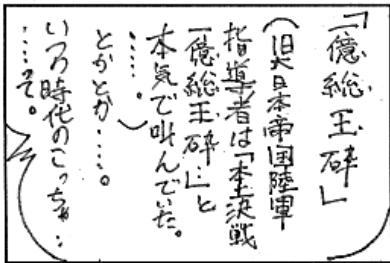 「一億総玉砕」
（旧大日本帝国陸軍
指導者は「本土決戦
一億総玉砕…」と
本気で叫んでいた。
……。）
とかとか……。
いつの時代のこっちゃ…
……て。